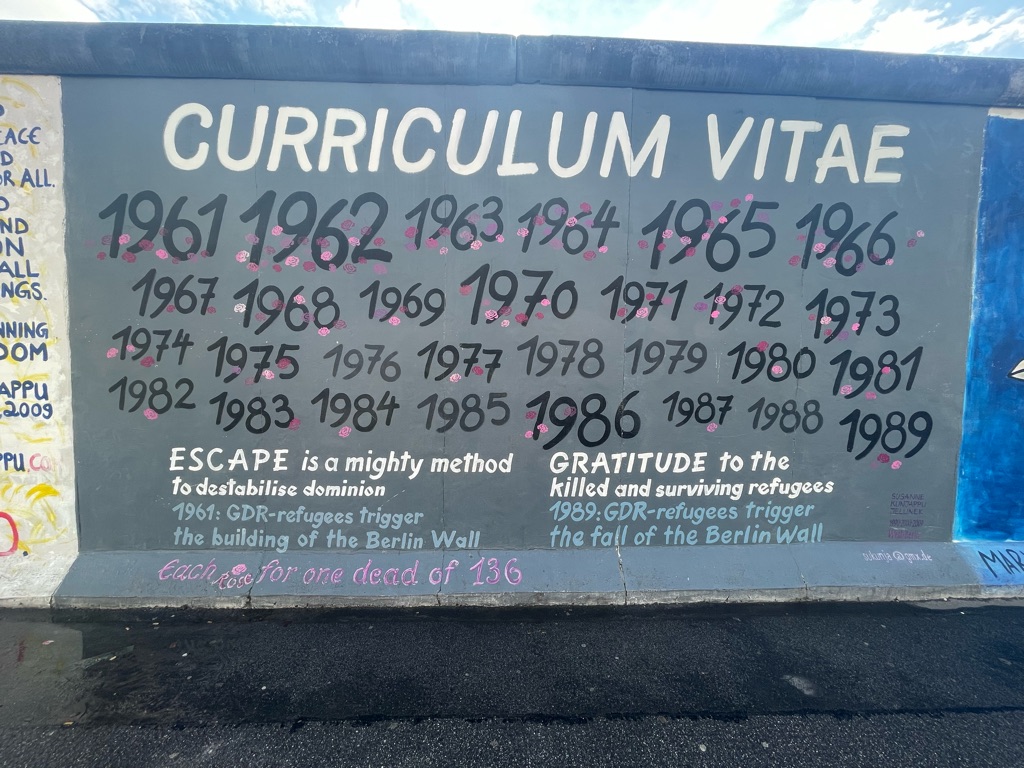 CURRICULUM VITAE
1961 1962 1963 1964 1965 1966
1967 1968 1969 1970 1971 1972 1973
1974 1975 1976 1977 1978 1979 1980 1981
1982 1983 1984 1985 1986 1987 1988 1989
ESCAPE is a mighty method
to destabilise dominion
1961: GDR-refugees trigger
the building of the Berlin Wall
GRATITUDE to the
killed and surviving refugees
1989: GDR-refugees trigger
the fall of the Berlin Wall
Each Rose for one dead of 136
SUSANNE
KUNJAPPU
JELLINEK
sukunje@gmx.de
EACE
D
OR ALL.
ND
ON
ALL
NGS.
NNING
DOM
APPU
,2009
PPU.CO
MAR